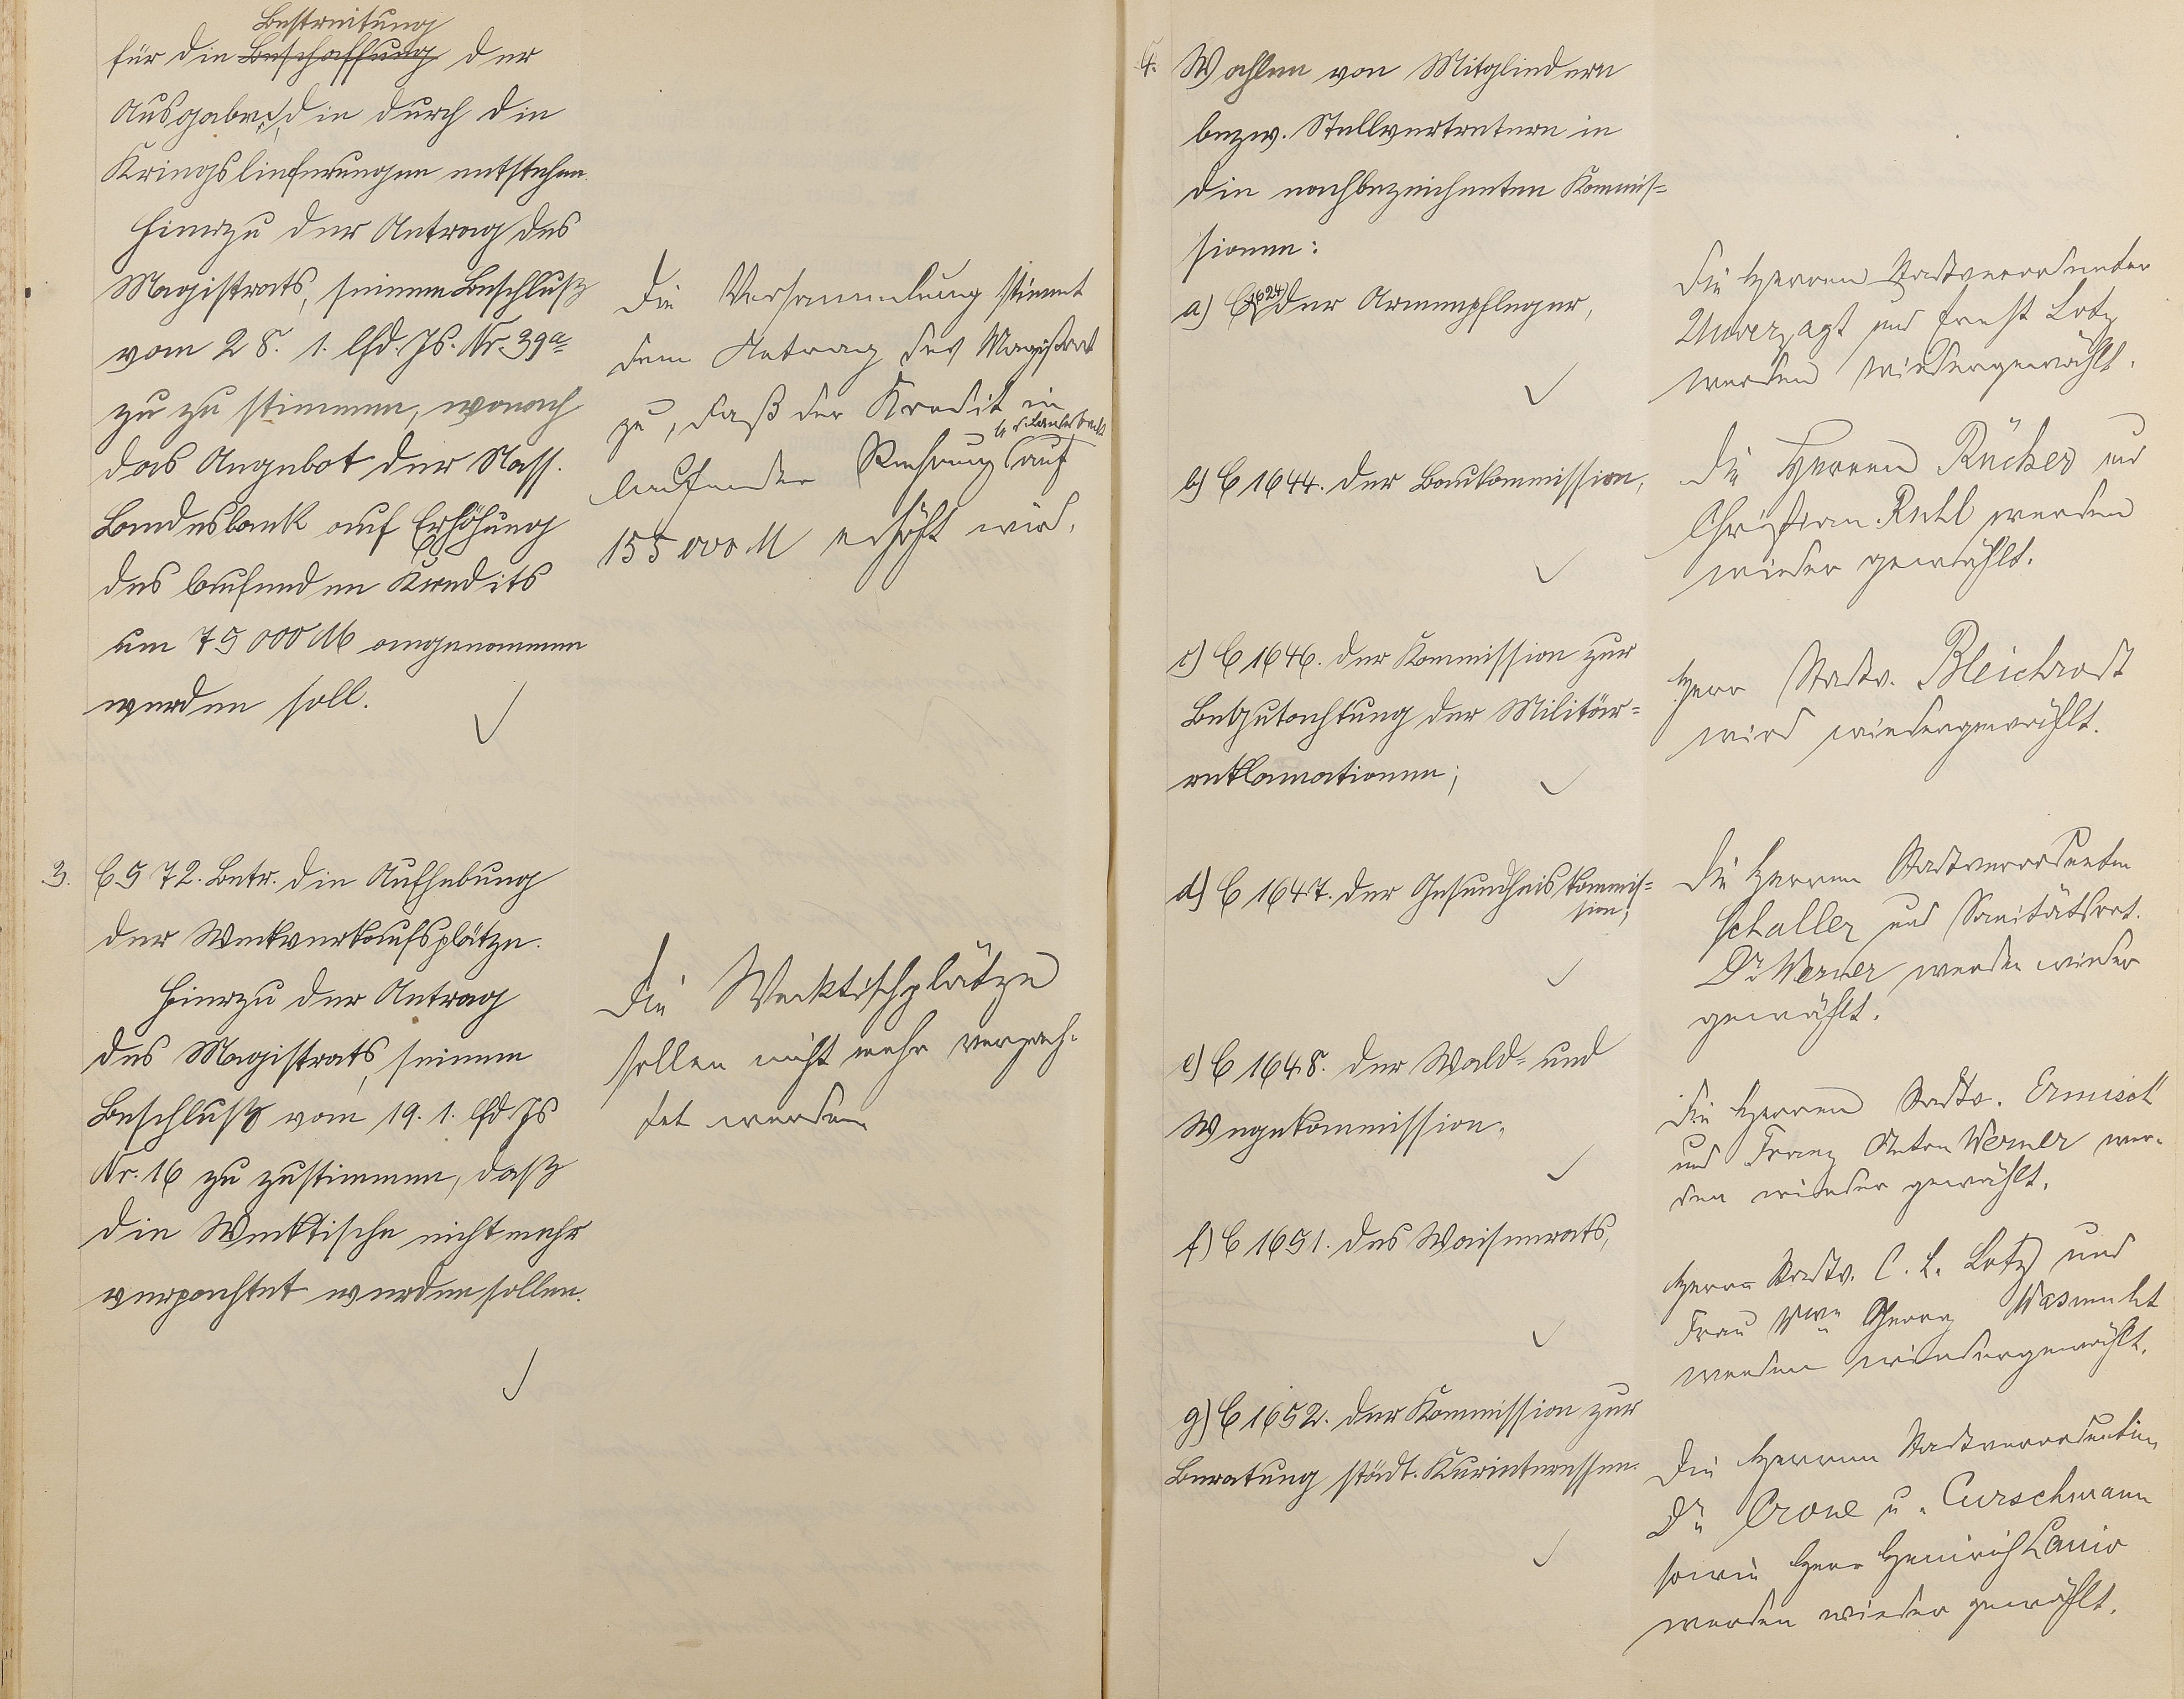 Bestreitung
für die Beschaffung der
Ausgaben, die durch die
Kriegslieferungen entstehen.
Hierzu der Antrag des
Magistrats, seinem Beschluß
vom 28. 1. lfd. Js. Nr. 39a
zu zu stimmen, wonach
das Angebot der Nass.
Landesbank auf Erhöhung
des laufenden Kredits
um 75000 M angenommen
werden soll.
Die Versammlung stimmt
dem Antrag des Magistrat
zu, daß der Kredit in
b. d. Landesbank
laufender Rechnung auf
155000 M erhöht wird.
3. C 572. Betr. die Aufhebung
der Weckverkaufsplätze.
Hierzu der Antrag
des Magistrats, seinem
Beschluß vom 19. 1. lfd Js
Nr. 16 zu zustimmen, daß
die Wecktische nicht mehr
verpachtet werden sollen.
Die Wecktischplätze
sollen nicht mehr verpach-
tet werden
4. Wahlen von Mitgliedern
bezw. Stellvertretern in
die nachbezeichneten Kommis-
sionen:
a) C 1624 der Armenpfleger,
Die Herren Stadtverordneter
Unverzagt und Ernst Lotz
werden wiedergewählt.
b) C 1644. der Baukommission,
Die Herren Rücker und
Christian Ruhl werden
wieder gewählt.
c) C 1646. der Kommission zur
Begutachtung der Militär-
reklamationen;
Herr Stadtv. Bleichrodt
wird wiedergewählt.
d) C 1647. der Gesundheitskommis-
sion;
Die Herren Stadtverordneten
Schaller und Sanitätsrat.
Dr Werner werden wieder
gewählt.
e) C 1648. der Wald- und
Wegekommission,
Die Herren Stadtv. Ermisch
und Franz Anton Werner wer-
den wieder gewählt.
f) C 1651. des Waisenrats,
Herr Stadtv. C. L. Lotz und
Frau Wwe Georg Wasmuht
werden wiedergewählt.
g) C 1652. der Kommission zur
Beratung städt. Kurinteressen.
Die Herren Stadtverordneten
Dr Crone u. Curschmann
sowie Herr Heinrich Lanio
werden wieder gewählt.